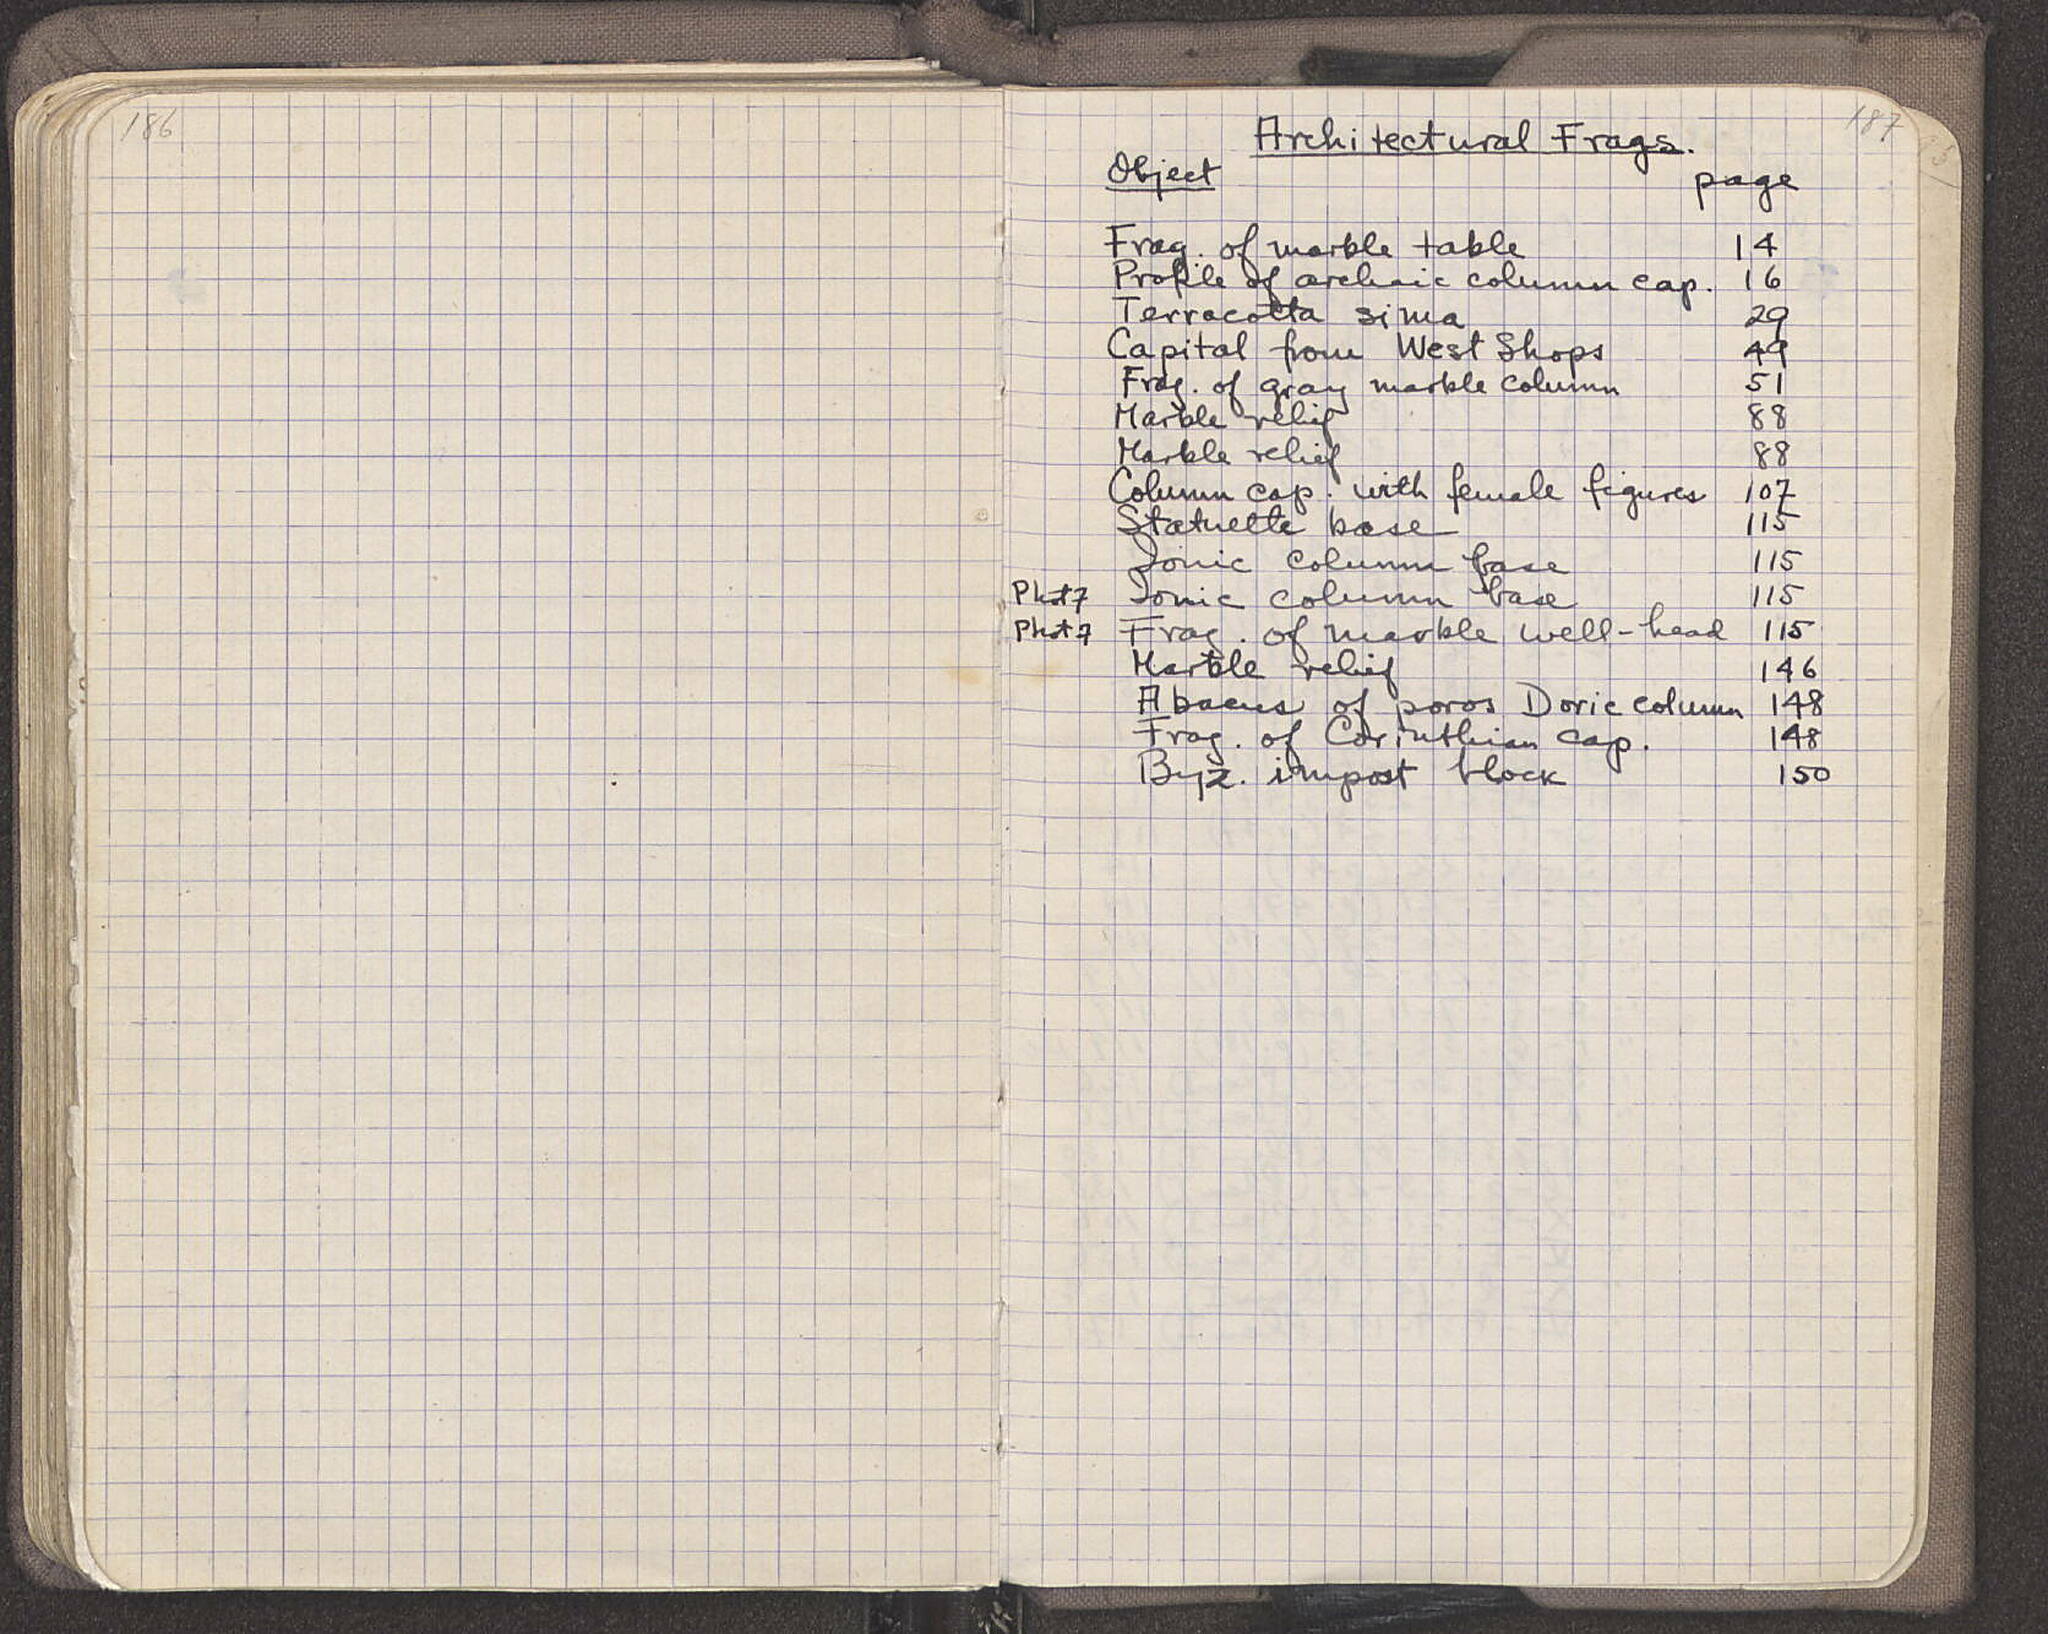 186
187
Architectural Frags.
Object page
Frag. of marble table 14
Profile of archaic column cap. 16
Terracotta sima 29
Capital from West Shops 49
Frag. of gray marble column 51
Marble relief 88
Marble relief 88
Column cap. with female figures 107
Statuette base 115
Ionic column base 115
Phot 7 Ionic column base 115
Phot 7 Frag. of marble well-head 115
Marble relief 146
Abacus of poros Doric column 148
Frag. of Corinthian cap. 148
Byz. impost block 150